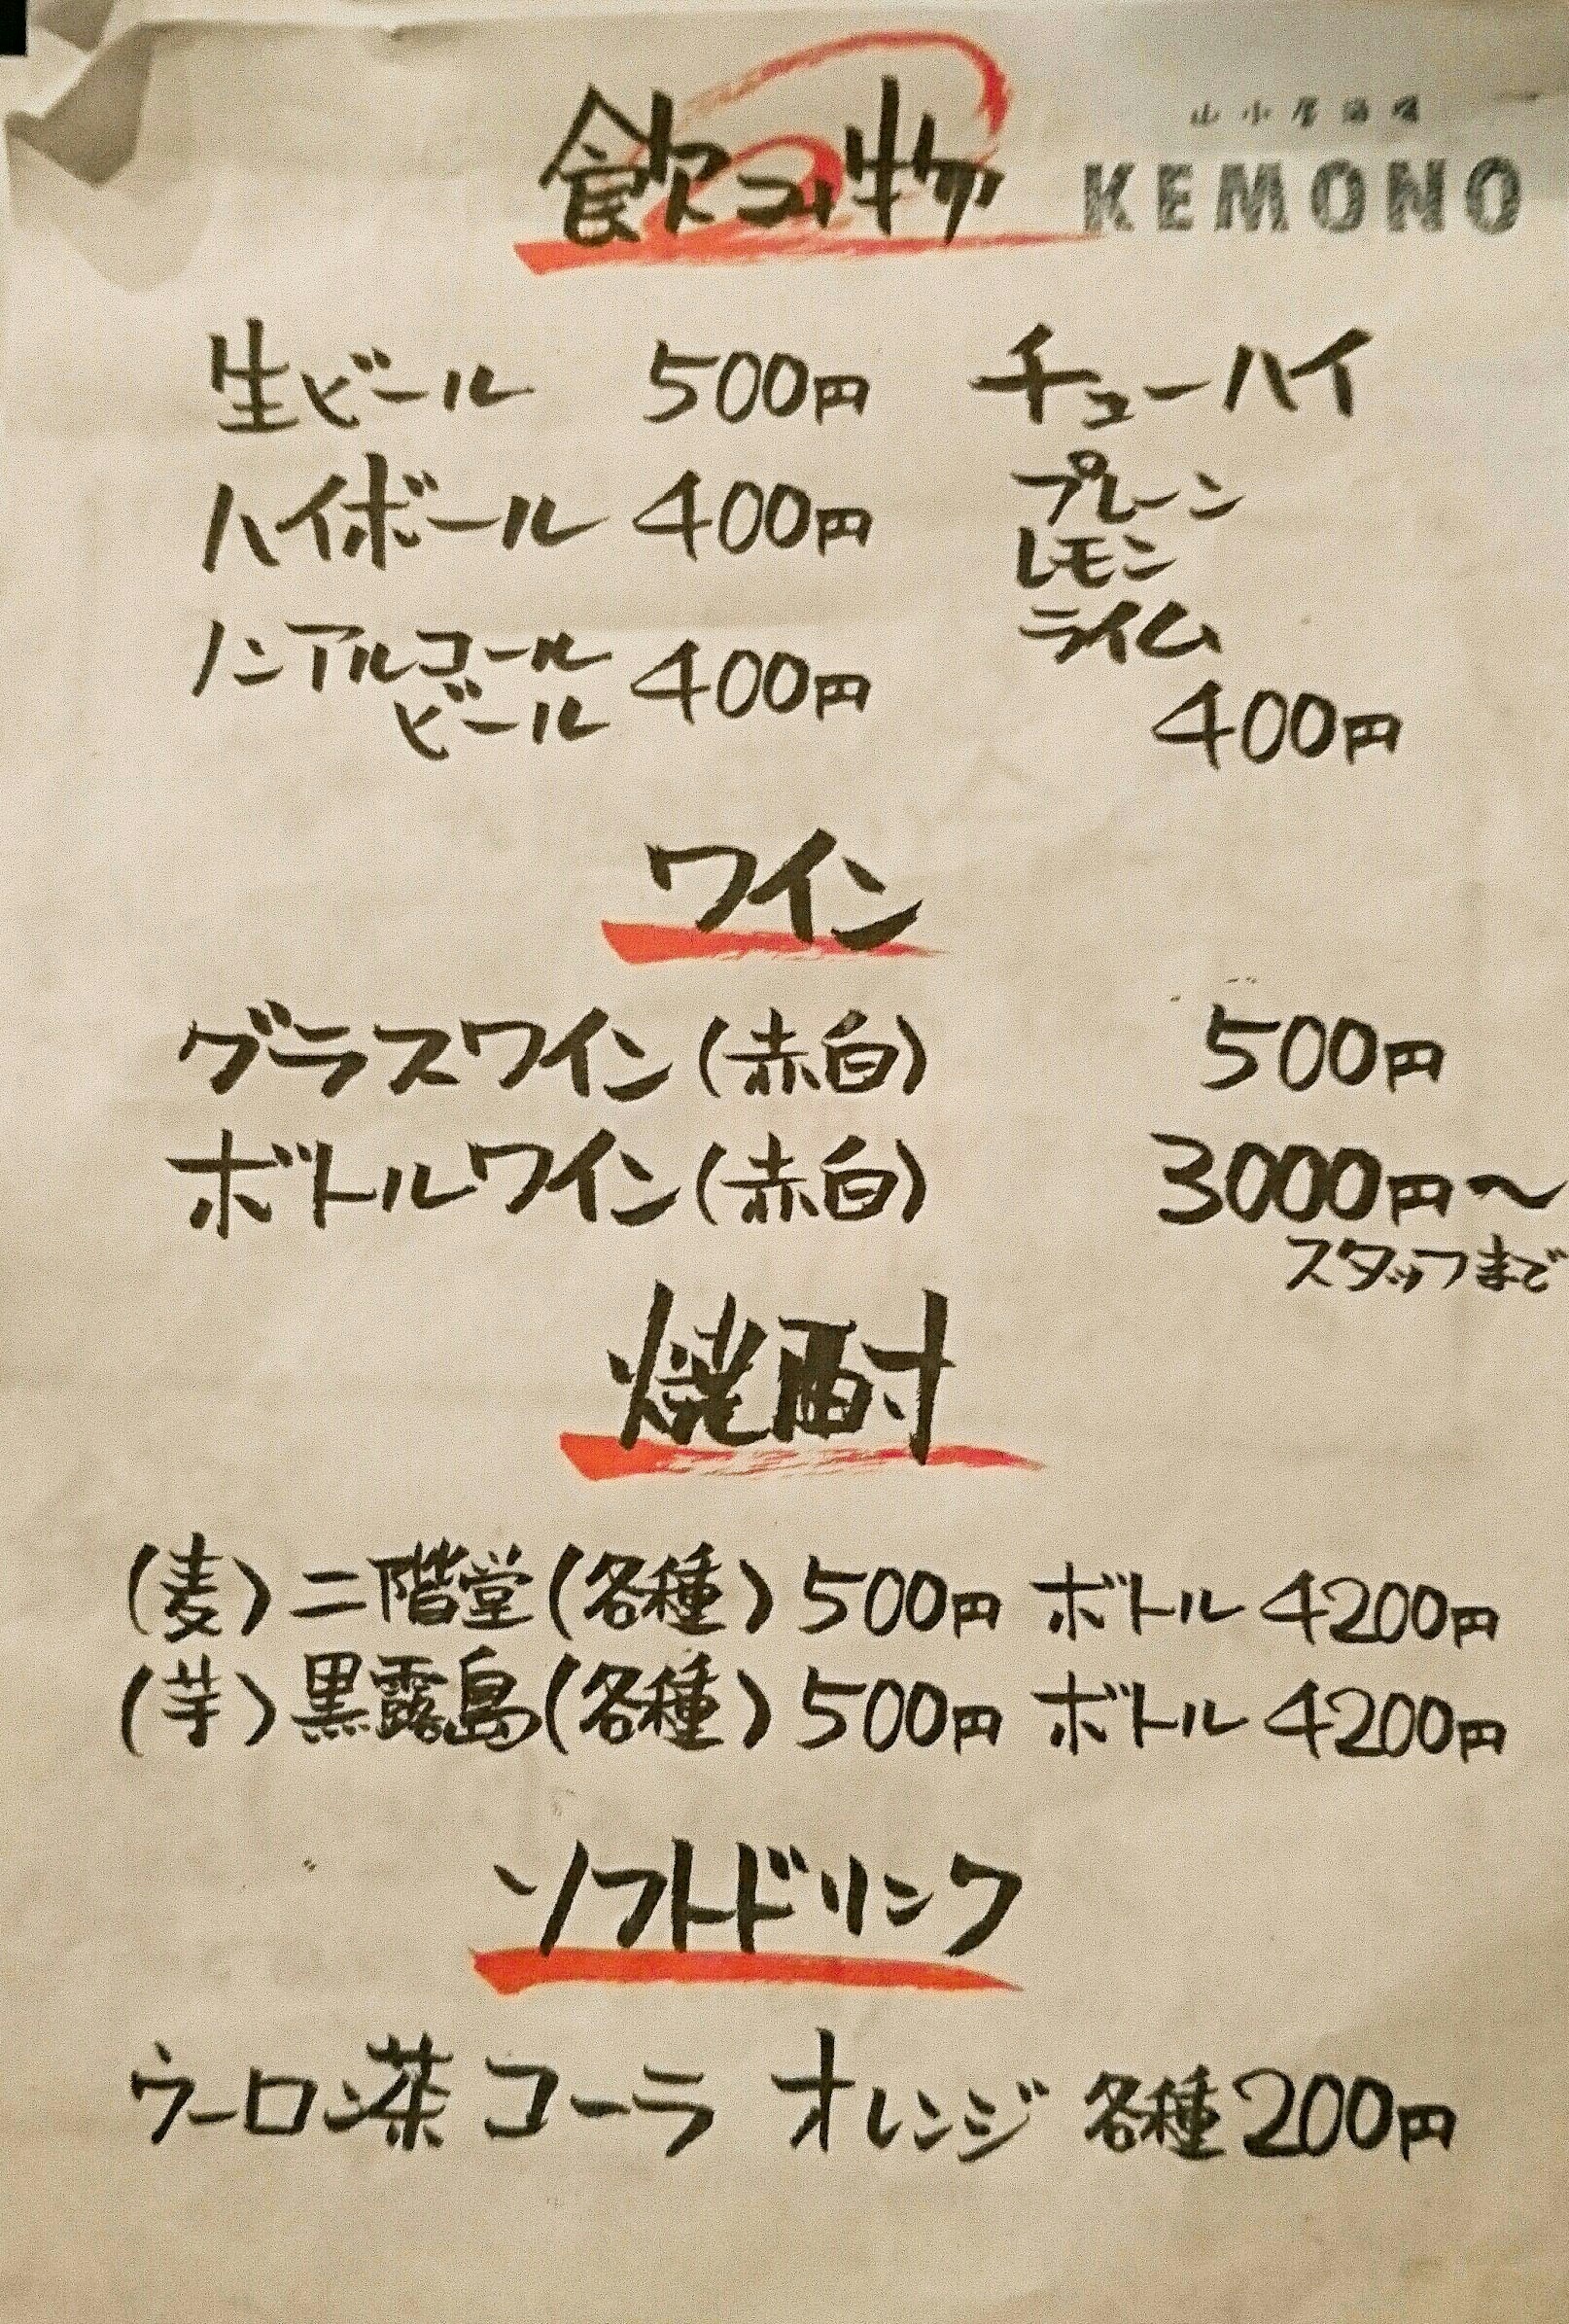 飲み物
山小屋酒場
KEMONO
生ビール 500円
ハイボール 400円
ノンアルコール
ビール 400円
チューハイ
プレーン
レモン
ライム
400円
ワイン
グラスワイン(赤白) 500円
ボトルワイン(赤白) 3000円〜
スタッフまで
焼酎
(麦)二階堂(各種)500円 ボトル 4200円
(芋)黒霧島(各種)500円 ボトル 4200円
ソフトドリンク
ウーロン茶 コーラ オレンジ 各種200円